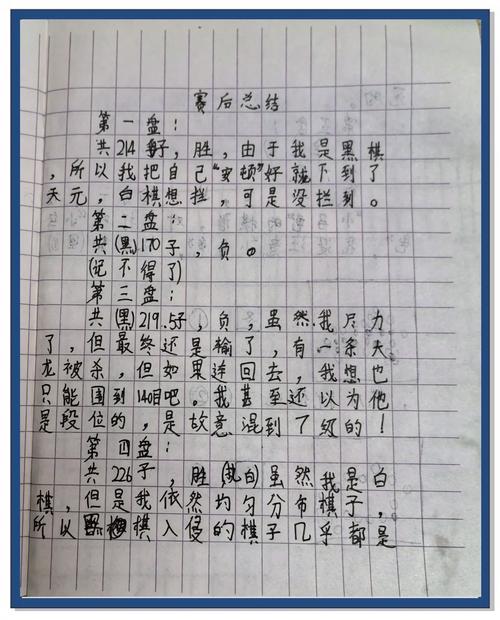 赛后总结
第一盘：
共214子，胜，由于我是黑棋
，所以我把自己“安顿”好就下到了
天元，白棋想拦，可是没拦到。
第二盘：
共(黑)170子，负。
(记不得了)
第三盘：
共(黑)219.5子，负，虽然我尽力
了，但最终还是输了，有一条大
龙被杀，但如果连回去，我想也
只能围到140目吧。我甚至还以为他
是段位的，是故意混到了级的！
第四盘：
共226子，胜(执白)虽然我是白
棋，但是我依然均匀分布棋子，
所以棋入侵的棋子几乎都是